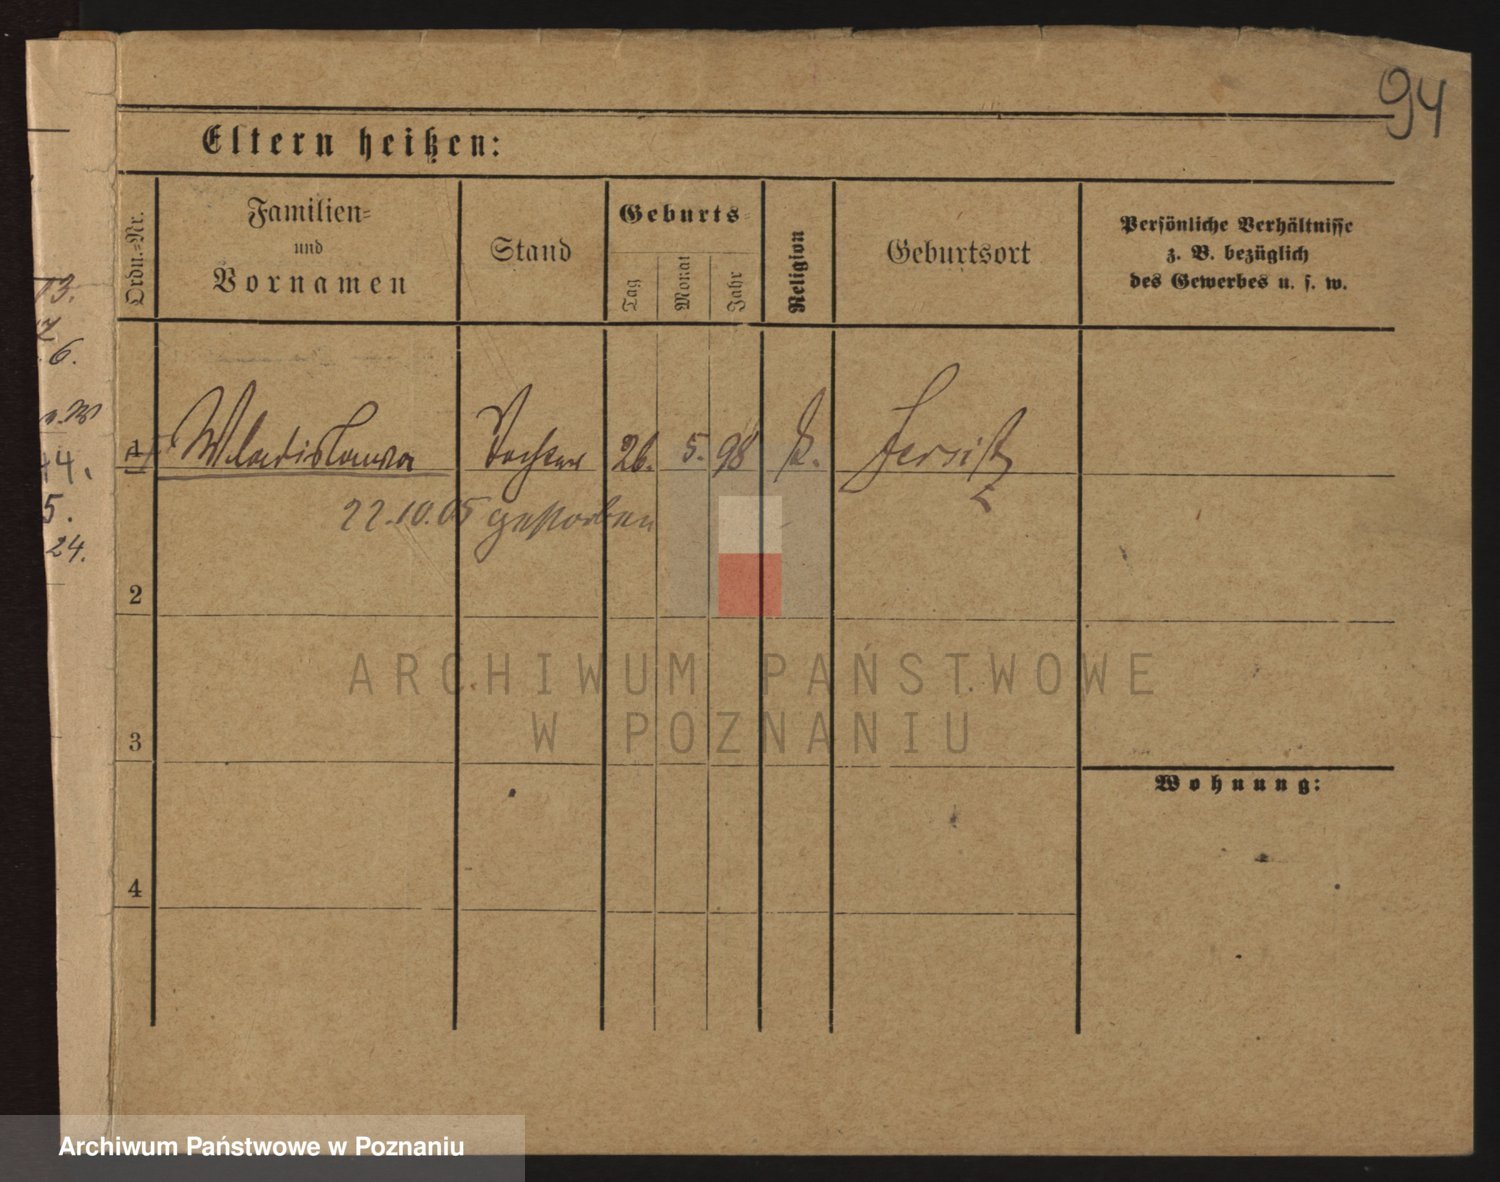 94
Eltern heißen:
Ordn.-Nr.
Familien-
und
Vornamen
Stand
Geburts-
Tag
Monat
Jahr
Religion
Geburtsort
Persönliche Verhältnisse
z. B. bezüglich
des Gewerbes u. s. w.
13.
6.
44.
5.
24.
1 Wladislawa Tochter 26. 5. 98 k. Jersitz
22.10.05 gestorben
2
3
4
Wohnung:
ARCHIWUM PAŃSTWOWE
W POZNANIU
Archiwum Państwowe w Poznaniu